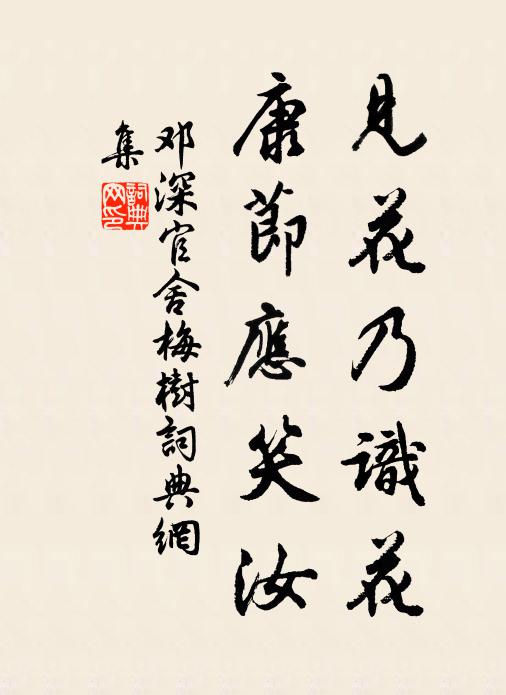 見花乃識花
康節應笑汝
邓深官舍梅樹詞典網
集
詞典
网印